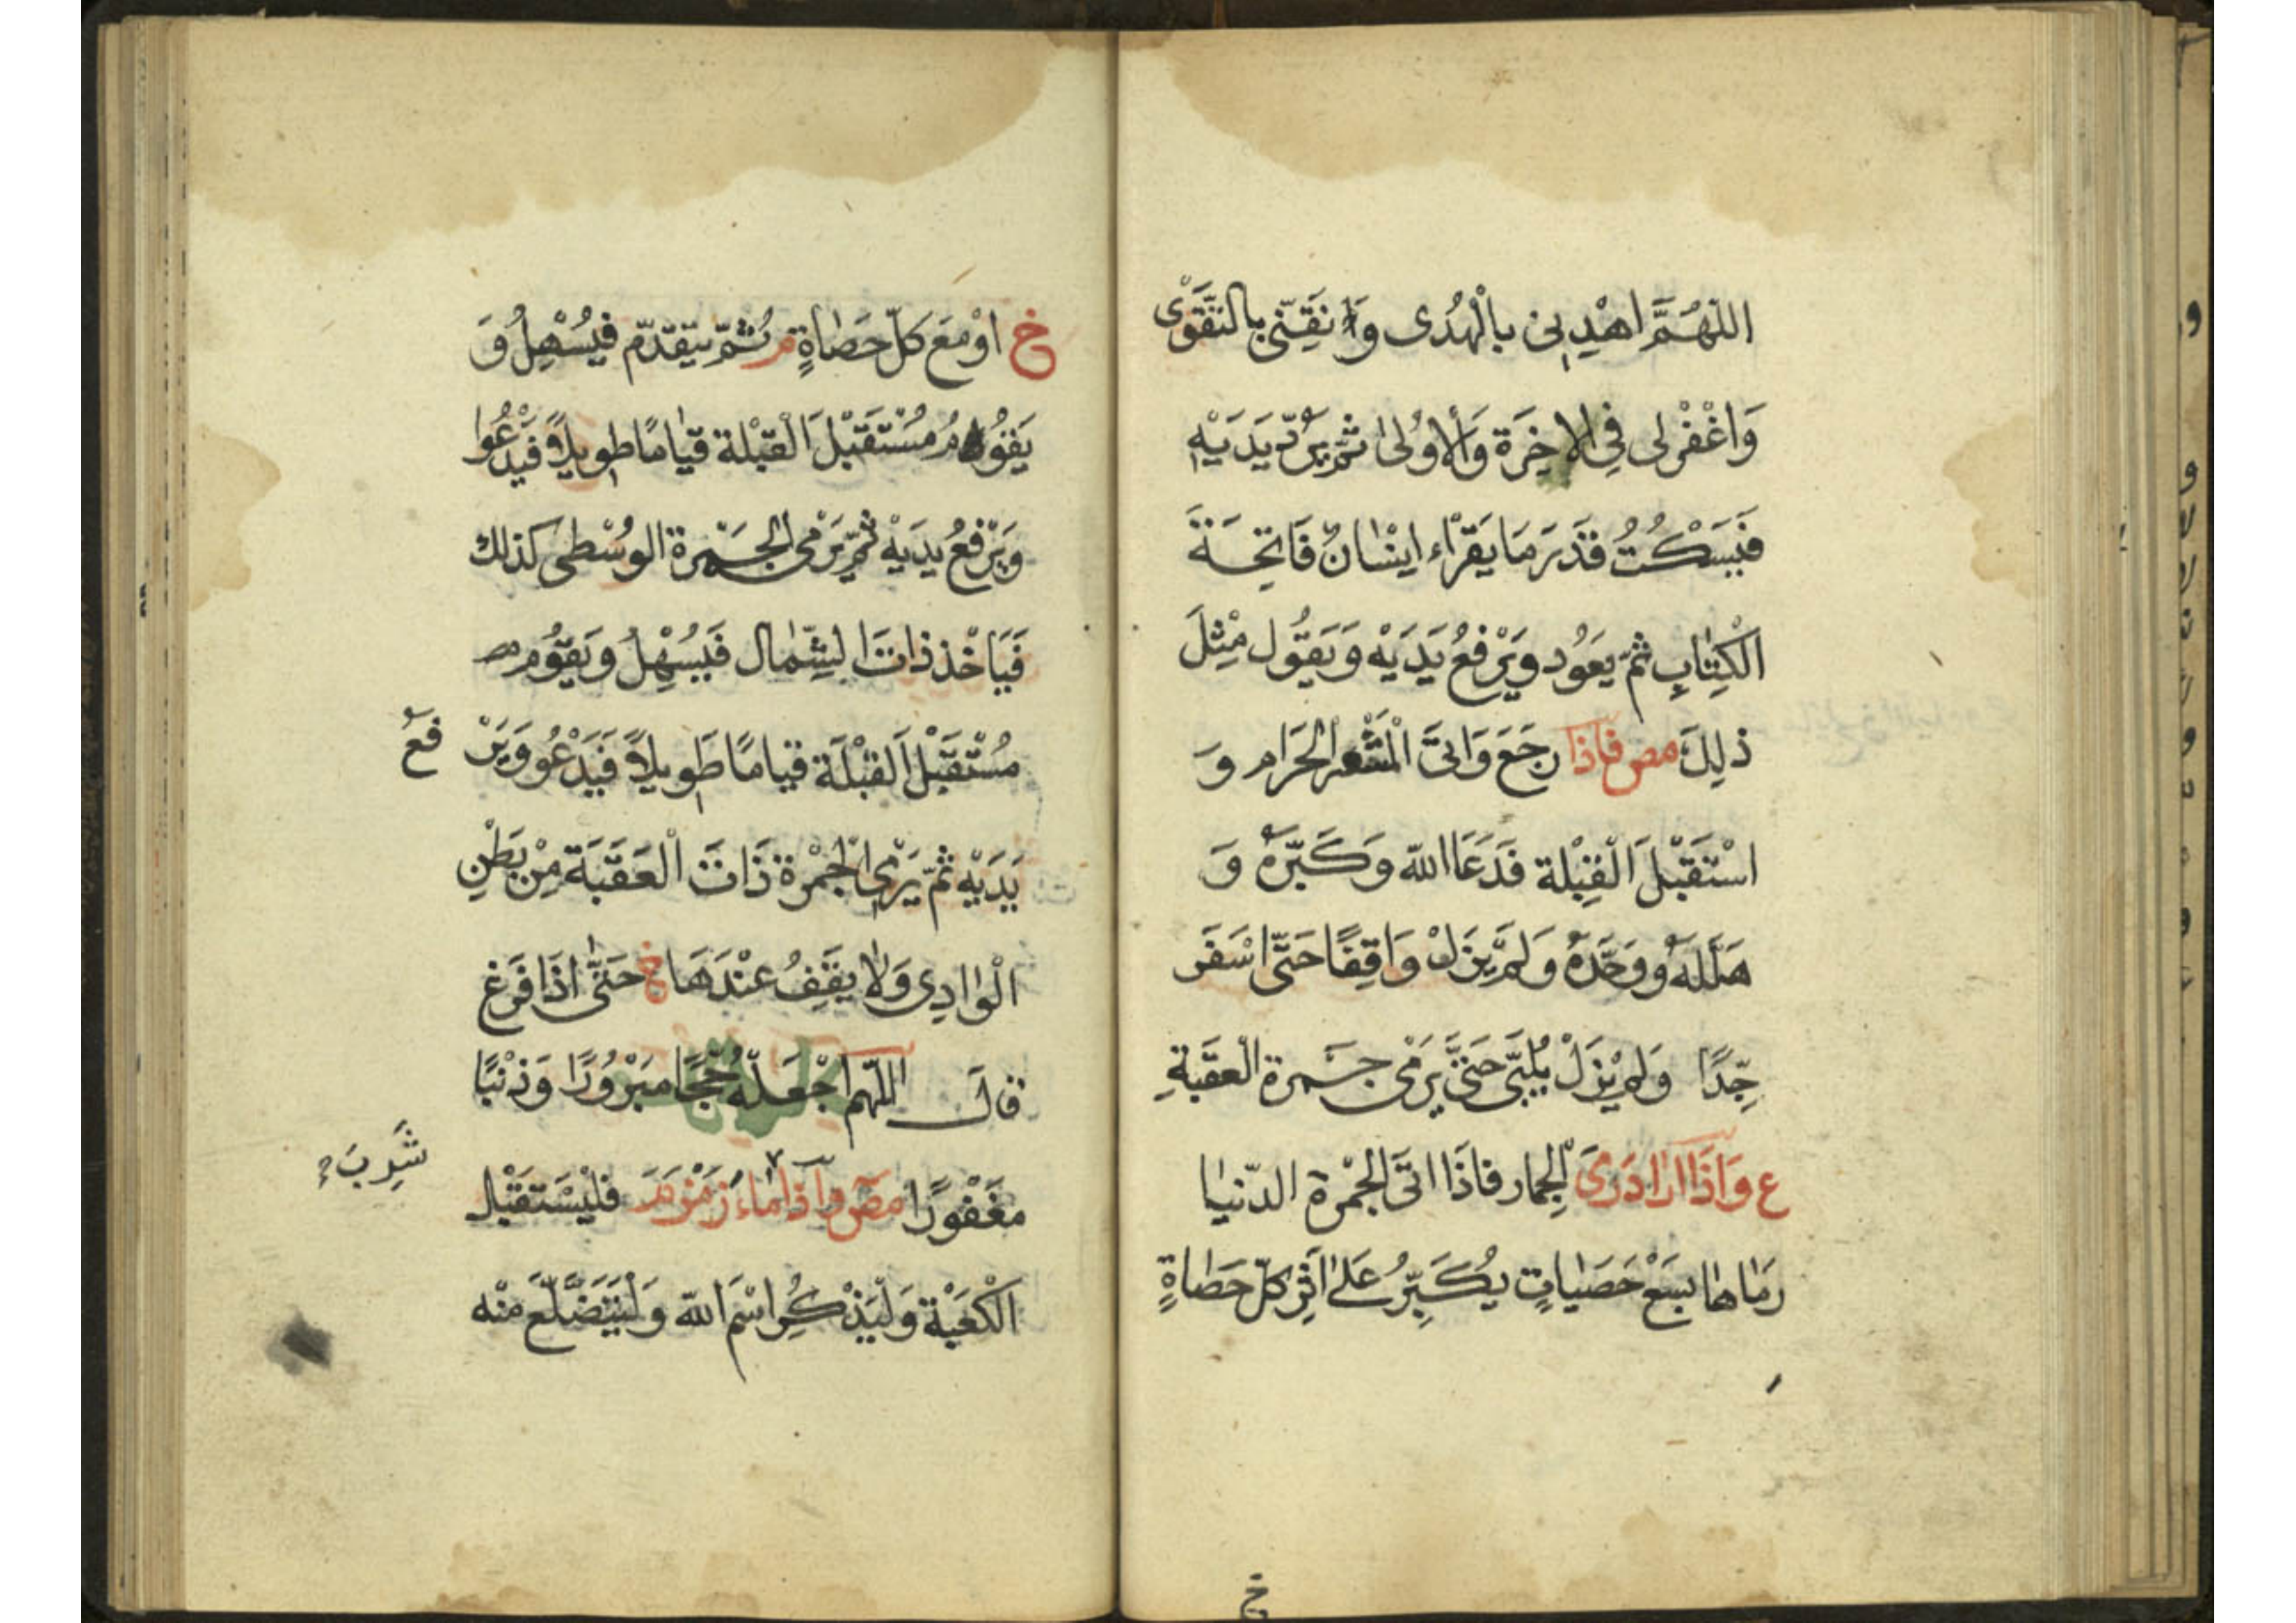 اللّٰهُمَّ اهْدِنِى بِالْهُدٰى وَنَقِّنِى بِالتَّقْوٰى
وَاغْفِرْ لِى فِى الاٰخِرَةِ وَالاُوْلٰى ثُمَّ يَرُدُّ يَدَيْهِ
فَيَسْكُتُ قَدَرَ مَا يَقْرَاءُ اِنْسَانٌ فَاتِحَةَ
الْكِتَابِ ثُمَّ يَعُودُ وَيَرْفَعُ يَدَيْهِ وَيَقُولُ مِثْلَ
ذٰلِكَ مص فَاِذَا رَجَعَ وَاتَى الْمَشْعَرَ الْحَرَامَ وَ
اسْتَقْبَلَ الْقِبْلَةَ فَدَعَا اللّٰهَ وَكَبَّرَهُ وَ
هَلَّلَهُ وَوَحَّدَهُ وَلَمْ يَزَلْ وَاقِفًا حَتّٰى اَسْفَرَ
جِدًّا وَلَمْ يَزَلْ يُلَبِّى حَتّٰى يَرْمِىَ جَمْرَةَ الْعَقَبَةِ
ع وَاِذَا اَرَادَ رَمْىَ الْجِمَارِ فَاِذَا اَتَى الْجَمْرَةَ الدُّنْيَا
رَمَاهَا بِسَبْعِ حَصَيَاتٍ يُكَبِّرُ عَلٰى اَثَرِ كُلِّ حَصَاةٍ
خ اَوْ مَعَ كُلِّ حَصَاةٍ م ثُمَّ يَتَقَدَّمُ فَيُسْهِلُ وَ
يَقُومُ مُسْتَقْبِلَ الْقِبْلَةِ قِيَامًا طَوِيلًا فَيَدْعُوا
وَيَرْفَعُ يَدَيْهِ ثُمَّ يَرْمِى الْجَمْرَةَ الْوُسْطٰى كَذٰلِكَ
فَيَاْخُذُ ذَاتَ الشِّمَالِ فَيُسْهِلُ وَيَقُومُ
مُسْتَقْبِلَ الْقِبْلَةِ قِيَامًا طَوِيلًا فَيَدْعُو وَيَرْفَعُ
يَدَيْهِ ثُمَّ يَرْمِى الْجَمْرَةَ ذَاتَ الْعَقَبَةِ مِنْ بَطْنِ
الْوَادِى وَلَا يَقِفُ عِنْدَهَا خ حَتّٰى اِذَا فَرَغَ
قَالَ اللّٰهُمَّ اجْعَلْهُ حَجًّا مَبْرُورًا وَذَنْبًا
مَغْفُورًا مص وَاِذَا مَاءَ زَمْزَمَ فَلْيَسْتَقْبِلِ
شَرِبَ
الْكَعْبَةَ وَلْيَذْكُرِ اسْمَ اللّٰهِ وَلْيَتَضَلَّعْ مِنْهُ